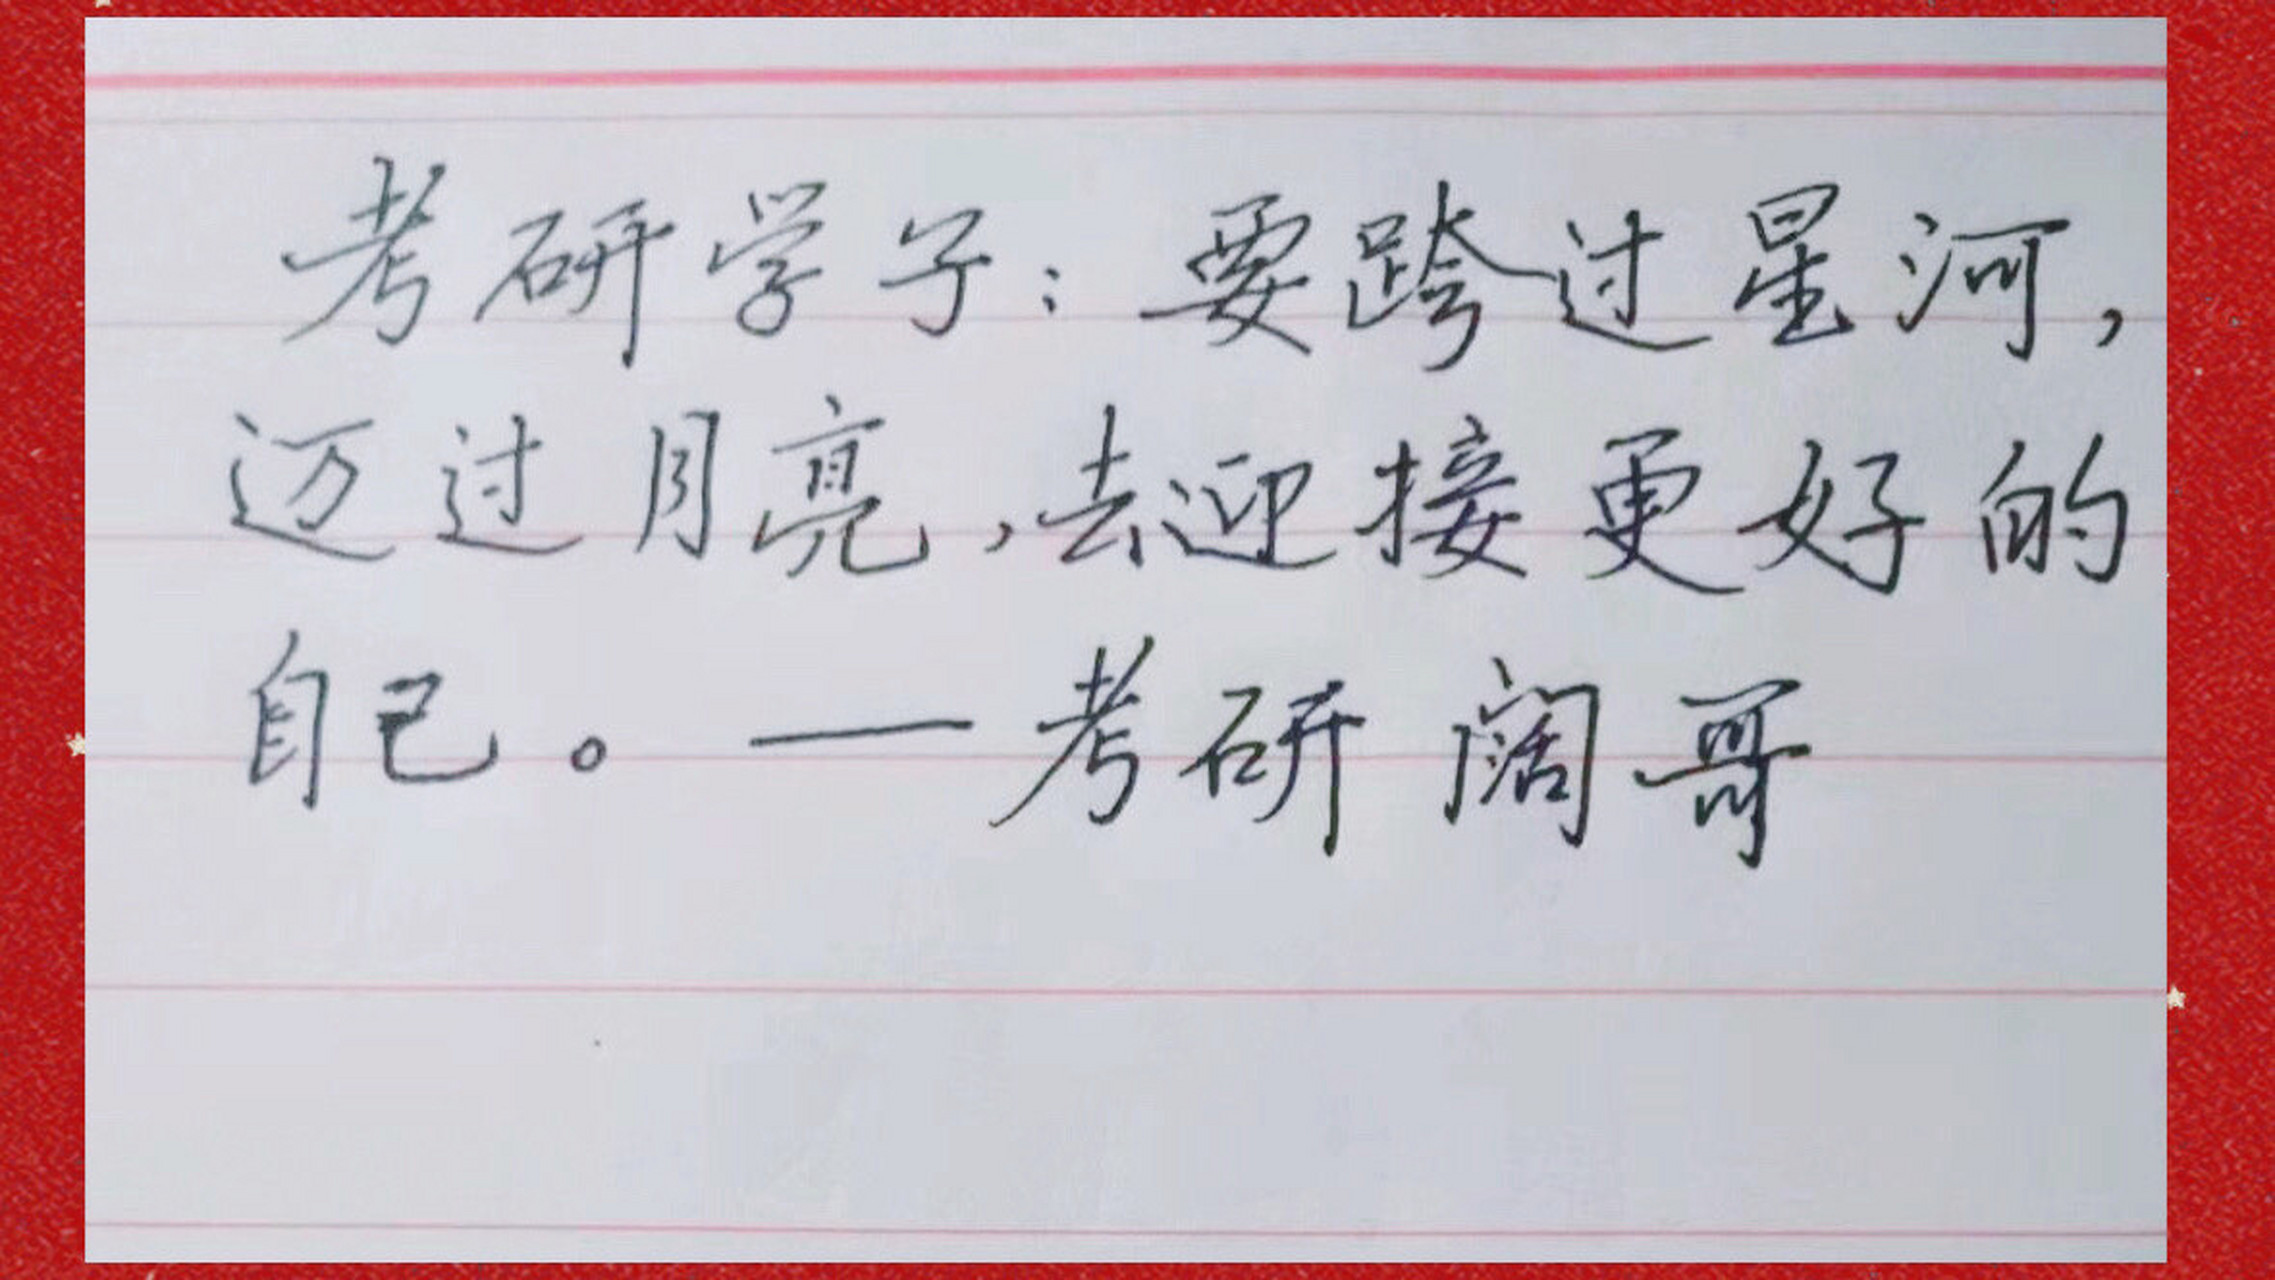 考研学子：要跨过星河，
迈过月亮，去迎接更好的
自己。—考研阔哥